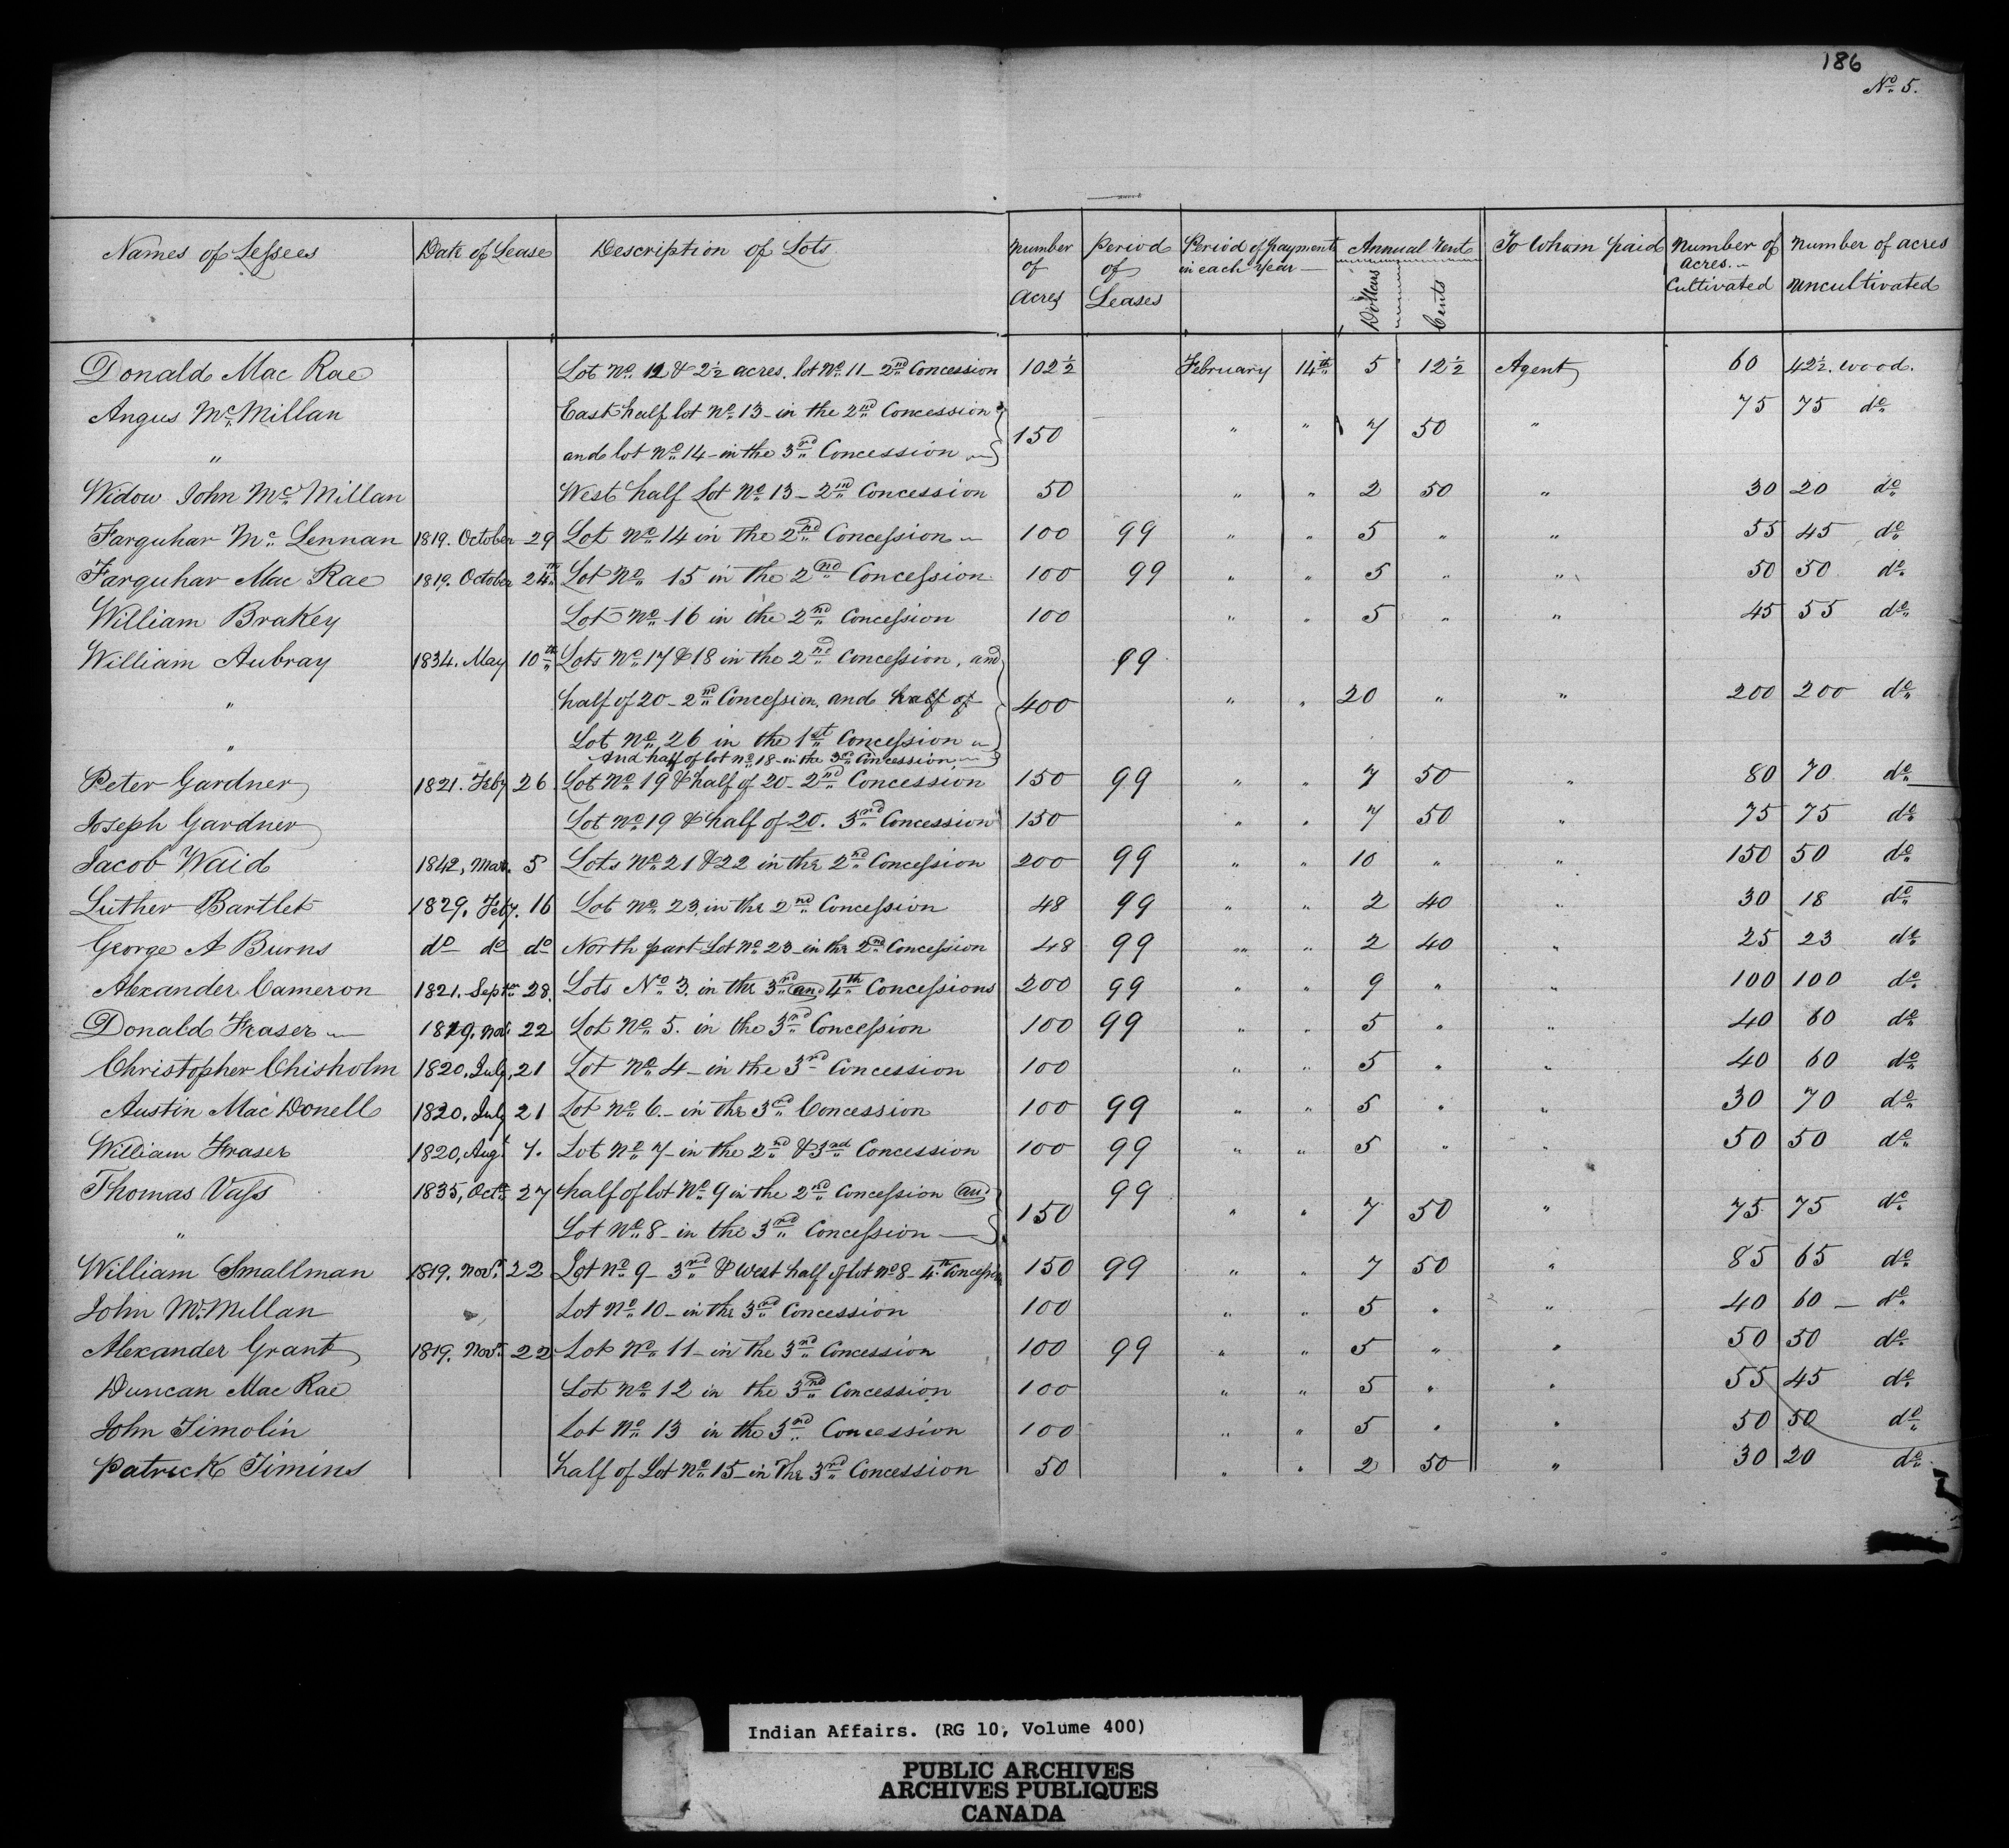 186
No. 5.
Names of Lessees Date of Lease Description of Lots Number of Acres Period of Leases Period of payment in each Year Annual Rent Dollars Cents To Whom paid Number of acres Cultivated Number of acres uncultivated
Donald Mac Rae Lot No. 12 & 2½ acres. lot No. 11 - 2nd Concession 102½ February 14th 5 12½ Agent 60 42½ wood.
Angus Mc Millan East half lot No. 13 - in the 2nd Concession 75 75 do
" and lot No. 14 - in the 3rd Concession 150 " " 7 50 "
Widow John Mc Millan West half Lot No. 13 - 2nd Concession 50 " " 2 50 " 30 20 do
Farquhar Mc Lennan 1819. October 29 Lot No. 14 in the 2nd Concession 100 99 " " 5 " " 55 45 do
Farquhar Mac Rae 1819. October 24th Lot No. 15 in the 2nd Concession 100 99 " " 5 " " 50 50 do
William Brakey Lot No. 16 in the 2nd Concession 100 " " 5 " " 45 55 do
William Aubray 1834. May 10th Lots No. 17 & 18 in the 2nd Concession, and 99
" half of 20 - 2nd Concession. and half of 400 " " 20 " " 200 200 do
" Lot No. 26 in the 1st Concession
And half of lot No. 18 - in the 3rd Concession
Peter Gardner 1821. Feby 26 Lot No. 19 & half of 20 - 2nd Concession 150 99 " " 7 50 " 80 70 do
Joseph Gardner Lot No. 19 & half of 20. 3rd Concession 150 " " 7 50 " 75 75 do
Jacob Waid 1842, Mar. 5 Lots No. 21 & 22 in the 2nd Concession 200 99 " " 10 " " 150 50 do
Luther Bartlet 1829. Feby. 16 Lot No. 23. in the 2nd Concession 48 99 " " 2 40 " 30 18 do
George A Burns do do do North part Lot No. 23 - in the 2nd Concession 48 99 " " 2 40 " 25 23 do
Alexander Cameron 1821. Septr 28. Lots No. 3. in the 3rd and 4th Concessions 200 99 " " 9 " " 100 100 do
Donald Fraser 1819. Nov. 22 Lot No. 5. in the 3rd Concession 100 99 " " 5 " " 40 60 do
Christopher Chisholm 1820. July. 21 Lot No. 4 - in the 3rd Concession 100 " " 5 " " 40 60 do
Austin Mac Donell 1820. July 21 Lot No. 6 - in the 3rd Concession 100 99 " " 5 " " 30 70 do
William Fraser 1820, Augt 7. Lot No. 7 - in the 2nd & 3rd Concession 100 99 " " 5 " " 50 50 do
Thomas Vass 1835, Octr 27 half of lot No. 9 in the 2nd Concession and 99
" Lot No. 8 - in the 3rd Concession 150 " " 7 50 " 75 75 do
William Smallman 1819. Novr. 22 Lot No. 9 - 3rd & West half of lot No 8 - 4th Concession 150 99 " " 7 50 " 85 65 do
John Mc Millan Lot No. 10 - in the 3rd Concession 100 " " 5 " " 40 60 - do
Alexander Grant 1819. Novr. 22 Lot No. 11 - in the 3rd Concession 100 99 " " 5 " " 50 50 do
Duncan Mac Rae Lot No. 12 in the 3rd Concession 100 " " 5 " " 55 45 do
John Timolin Lot No. 13 in the 3rd Concession 100 " " 5 " " 50 50 do
Patrick Timins half of Lot No. 15 - in the 3rd Concession 50 " " 2 50 " 30 20 do
Indian Affairs. (RG 10, Volume 400)
PUBLIC ARCHIVES
ARCHIVES PUBLIQUES
CANADA